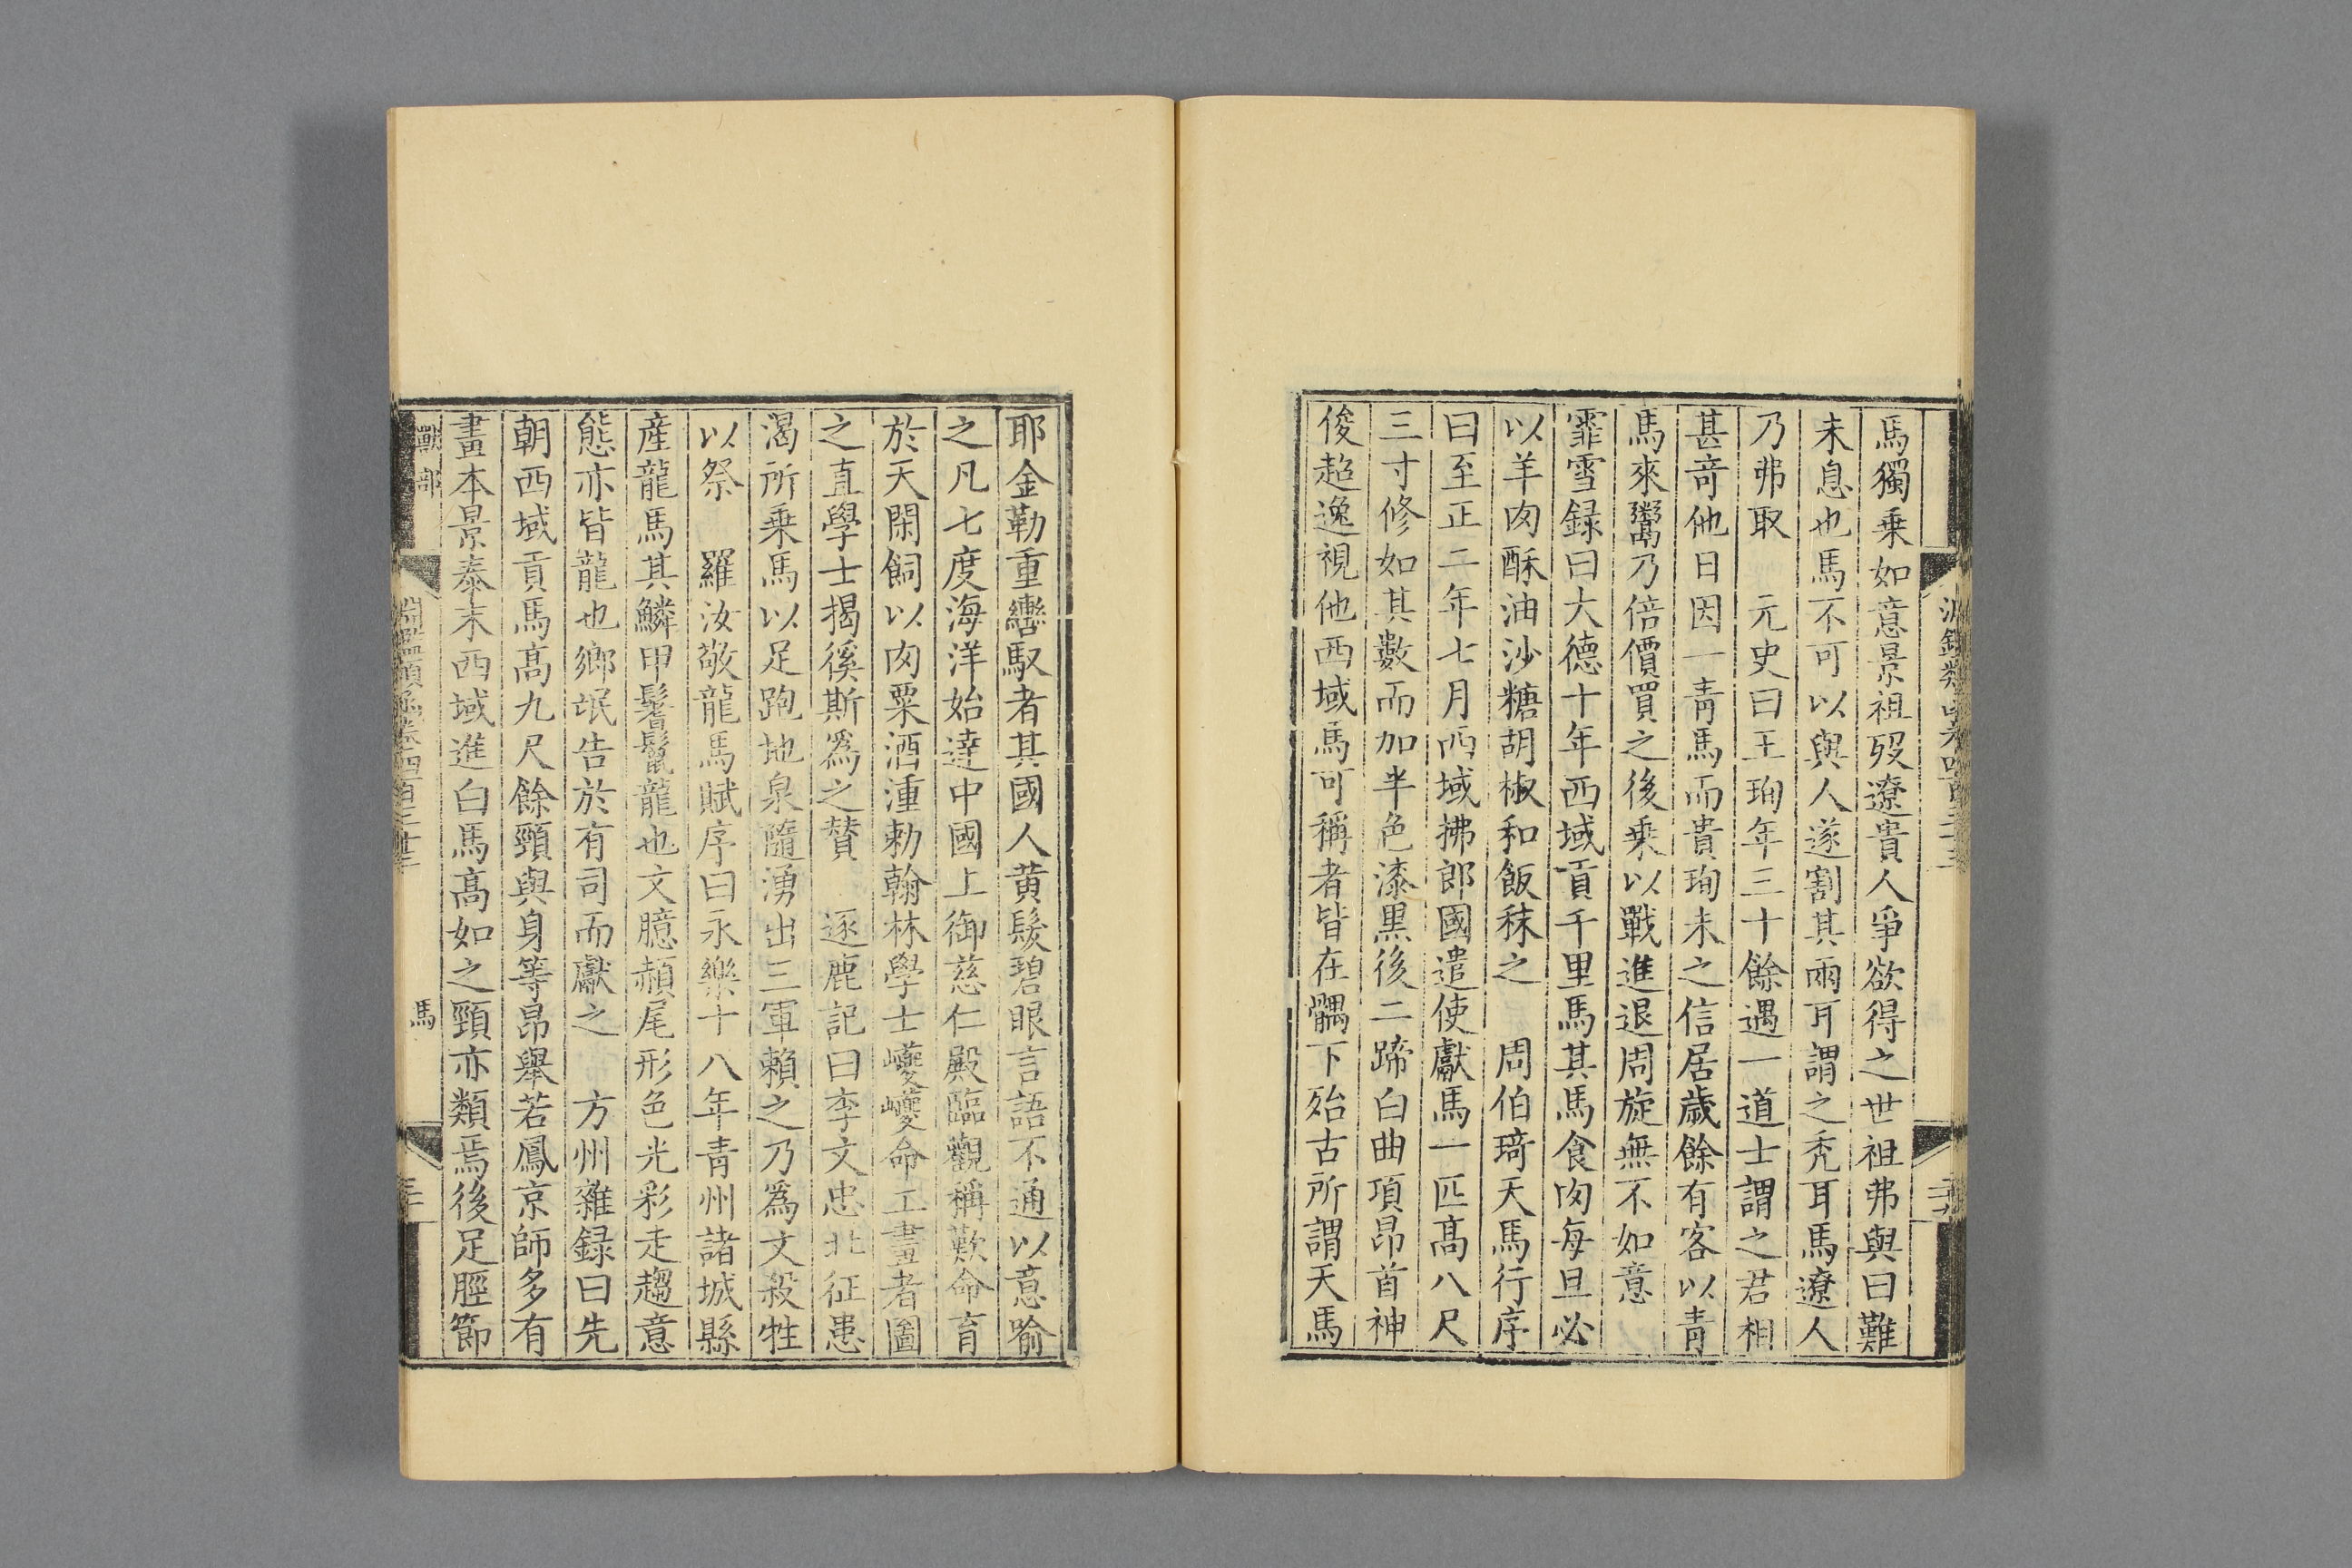 馬獨乗如意景祖歿遼貴人爭欲得之世祖弗與曰難
未息也馬不可以與人遂割其兩耳謂之秃耳馬遼人
乃弗取　元史曰王珣年三十餘遇一道士謂之君相
甚奇他日因一青馬而貴珣未之信居歲餘有客以青
馬來鬻乃倍價買之後乗以戰進退周旋無不如意
霏雪録曰大德十年西域貢千里馬其馬食肉每旦必
以羊肉酥油沙糖胡椒和飯秣之　周伯琦天馬行序
曰至正二年七月西域拂郎國遣使獻馬一匹髙八尺
三寸修如其數而加半色漆黒後二蹄白曲項昂首神
俊超逸視他西域馬可稱者皆在髃下殆古所謂天馬
耶金勒重轡馭者其國人黄髮碧眼言語不通以意喻
之凡七度海洋始達中國上御慈仁殿臨觀稱歎命育
於天閑飼以肉粟酒湩勅翰林學士巙巙命工畫者圖
之直學士揭徯斯為之賛　逐鹿記曰李文忠北征患
渴所乗馬以足跑地泉隨湧出三軍賴之乃為文殺牲
以祭　羅汝敬龍馬賦序曰永樂十八年青州諸城縣
産龍馬其鱗甲鬐鬛龍也文臆頳尾形色光彩走趨意
態亦皆龍也鄉氓告於有司而獻之　方州雜録曰先
朝西域貢馬髙九尺餘頸與身等昂舉若鳳京師多有
畫本景泰末西域進白馬髙如之頸亦類焉後足脛節
獸部
馬